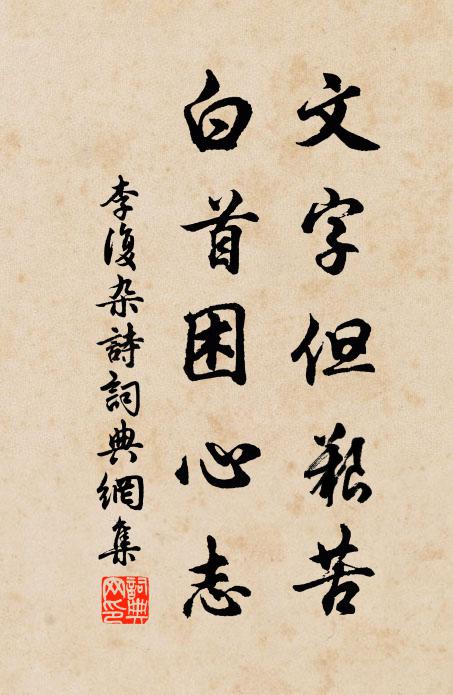 文字但艱苦
白首困心志
李復杂詩詞典網集
詞典
网印